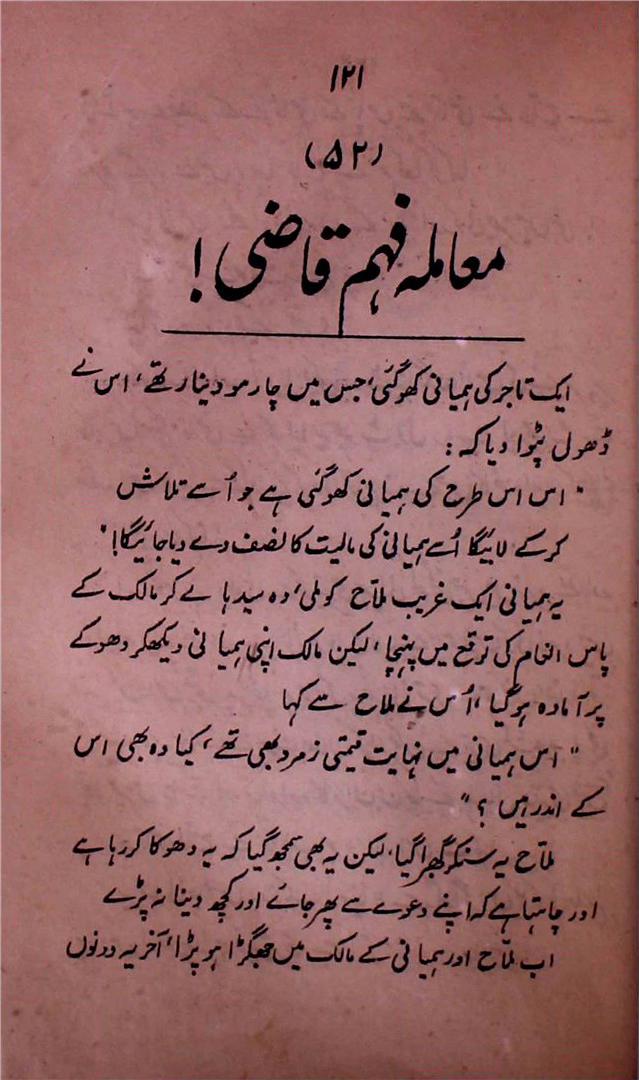 ۱۲۱
(۵۲)
معاملہ فہم قاضی!
ایک تاجر کی ہمیانی کھو گئی، جس میں چار سو دینار تھے، اس نے
ڈھول پٹوا دیا کہ:
"اس اس طرح کی ہمیانی کھو گئی ہے جو اُسے تلاش
کر کے لائیگا اُسے ہمیانی کی مالیت کا نصف دے دیا جائیگا!"
یہ ہمیانی ایک غریب ملاّح کو ملی، وہ سیدہا لے کر مالک کے
پاس انعام کی توقع میں پہنچا، لیکن مالک اپنی ہمیانی دیکھکر دھوکے
پر آمادہ ہو گیا، اُس نے ملاح سے کہا
"اس ہمیانی میں نہایت قیمتی زمرد بھی تھے، کیا وہ بھی اس
کے اندر ہیں؟"
ملاّح یہ سنکر گھبرا گیا، لیکن یہ بھی سمجھ گیا کہ یہ دھوکا کر رہا ہے
اور چاہتا ہے کہ اپنے دعوے سے پھر جائے اور کچھ دینا نہ پڑے
اب ملاّح اور ہمیانی کے مالک میں جھگڑا ہو پڑا، آخر یہ دونوں